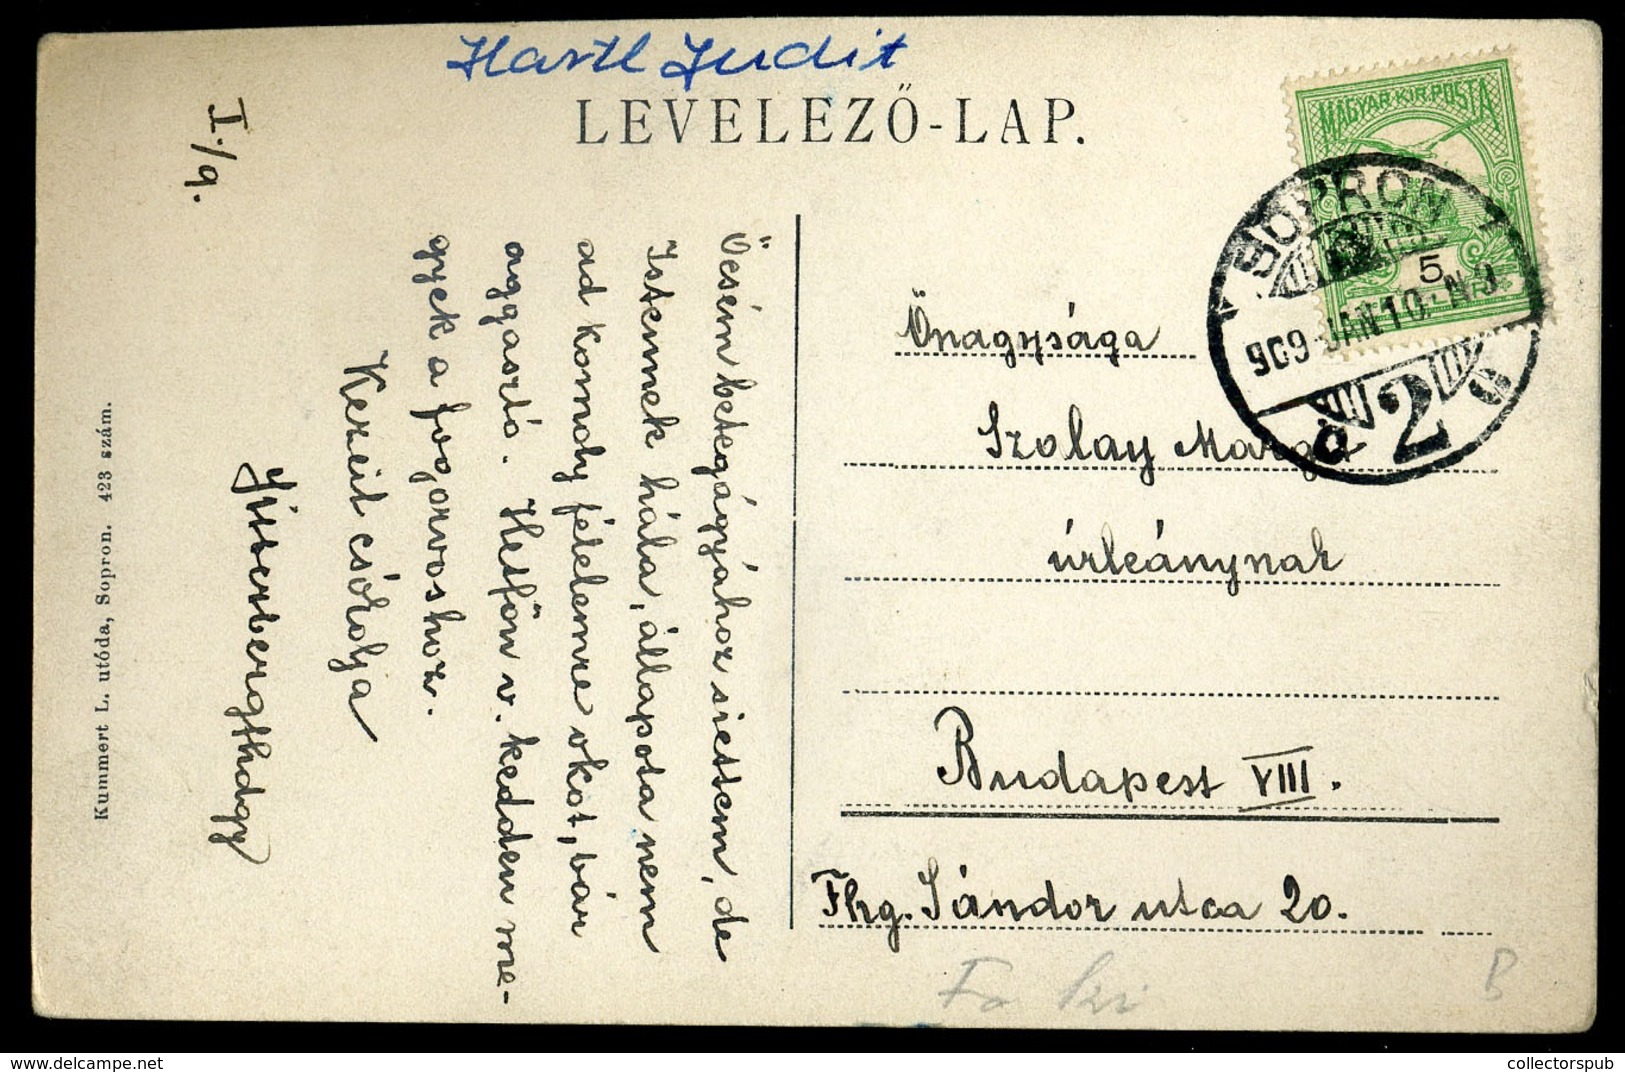 Hartl Judit
LEVELEZŐ-LAP.
MAGYAR KIR. POSTA
5
SOPRON
909 JAN 10
2
I./9.
Öcsém betegágyához siettem, de
Istennek hála, állapota nem
ad komoly félelemre okot, bár
aggasztó. Hetfőn v. kedden me-
gyek a fogorvoshoz.
Kezeit csókolja
Kummert L. utóda, Sopron. 423 szám.
Őnagysága
Szolay Marga
úrleánynak
Budapest VIII.
Fhg. Sándor utca 20.
collectorspub